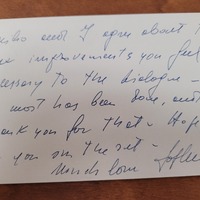 and I agree about t
improvements you feel
essary to the dialogue –
most has been done, and
ank you for that – Hope
you on the set –
Much love